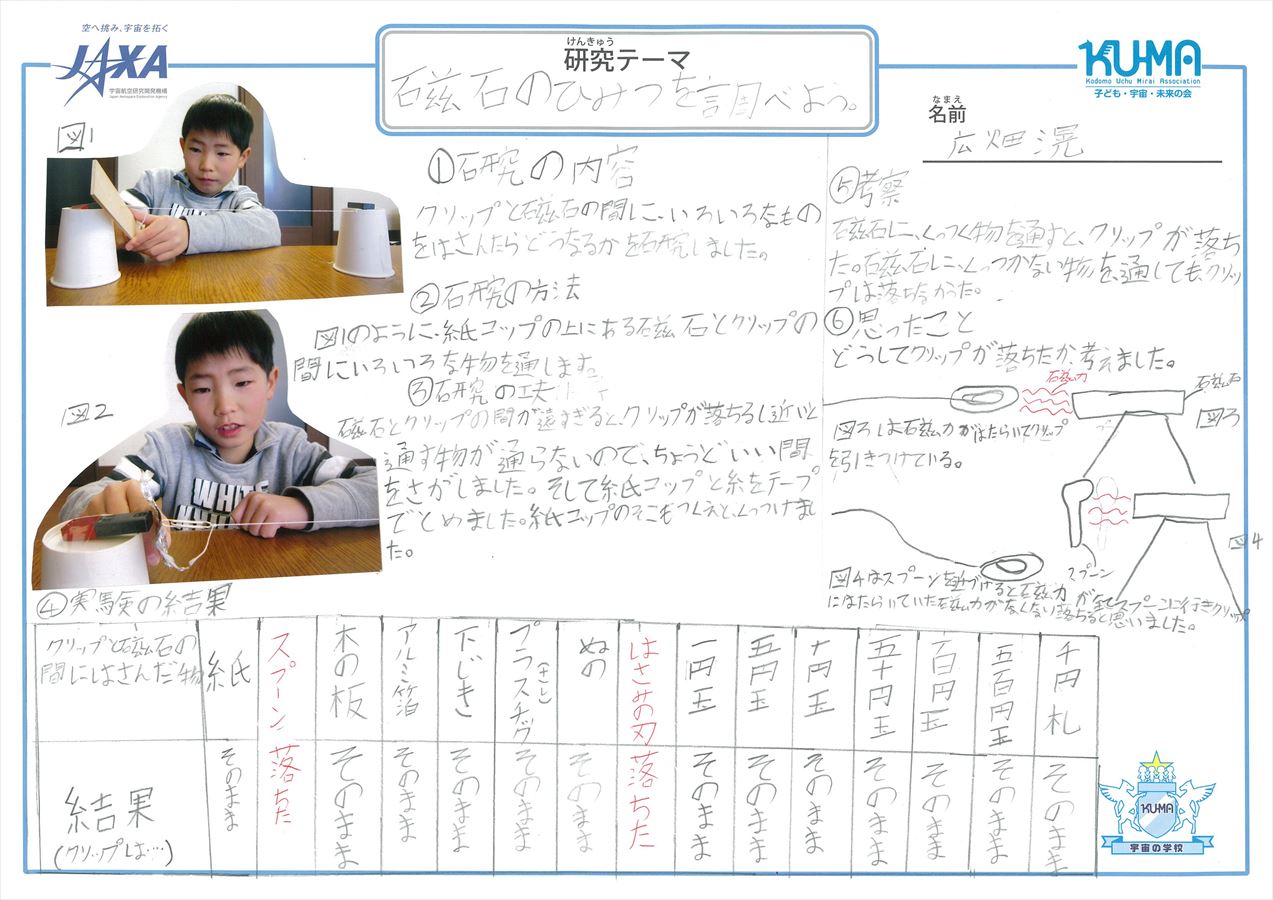 空へ挑み、宇宙を拓く
JAXA
宇宙航空研究開発機構
Japan Aerospace Exploration Agency
けんきゅう
研究テーマ
磁石のひみつを調べよう。
KUMA
Kodomo Uchu Mirai Association
子ども・宇宙・未来の会
なまえ
名前
広畑滉
図1
WHITE
図2
WHITE
①研究の内容
クリップと磁石の間に、いろいろなもの
をはさんたらどうなるかを研究しました。
②研究の方法
図1のように、紙コップの上にある磁石とクリップの
間にいろいろな物を通します。
③研究の工夫
磁石とクリップの間が遠すぎると、クリップが落ちるし近いと
通す物が通らないので、ちょうどいい間
をさがしました。そして紙コップと糸をテープ
でとめました。紙コップのそこもつくえと、くっつけまし
た。
⑤考察
磁石に、くっつく物を通すと、クリップが落ち
た。磁石に、くっつかない物を、通しても、クリッ
プは落ちなかった。
⑥思ったこと
どうしてクリップが落ちたか考えました。
磁力
磁石
図3
図3は磁力がはたらいてクリップ
を引きつけている。
スプーン
図4
図4はスプーンを近づけると磁力が全てスプーンに行きクリップ
にはたらいていた磁力がなくない落ちると思いました。
④実験の結果
クリップと磁石の
間にはさんだ物
紙
スプーン
木の板
アルミ箔
下じき
プラスチック
(ものさし)
ぬの
はさみの刃
一円玉
五円玉
十円玉
五十円玉
百円玉
五百円玉
千円札
結果
(クリップは…)
そのまま
落ちた
そのまま
そのまま
そのまま
そのまま
そのまま
落ちた
そのまま
そのまま
そのまま
そのまま
そのまま
そのまま
そのまま
KUMA
宇宙の学校